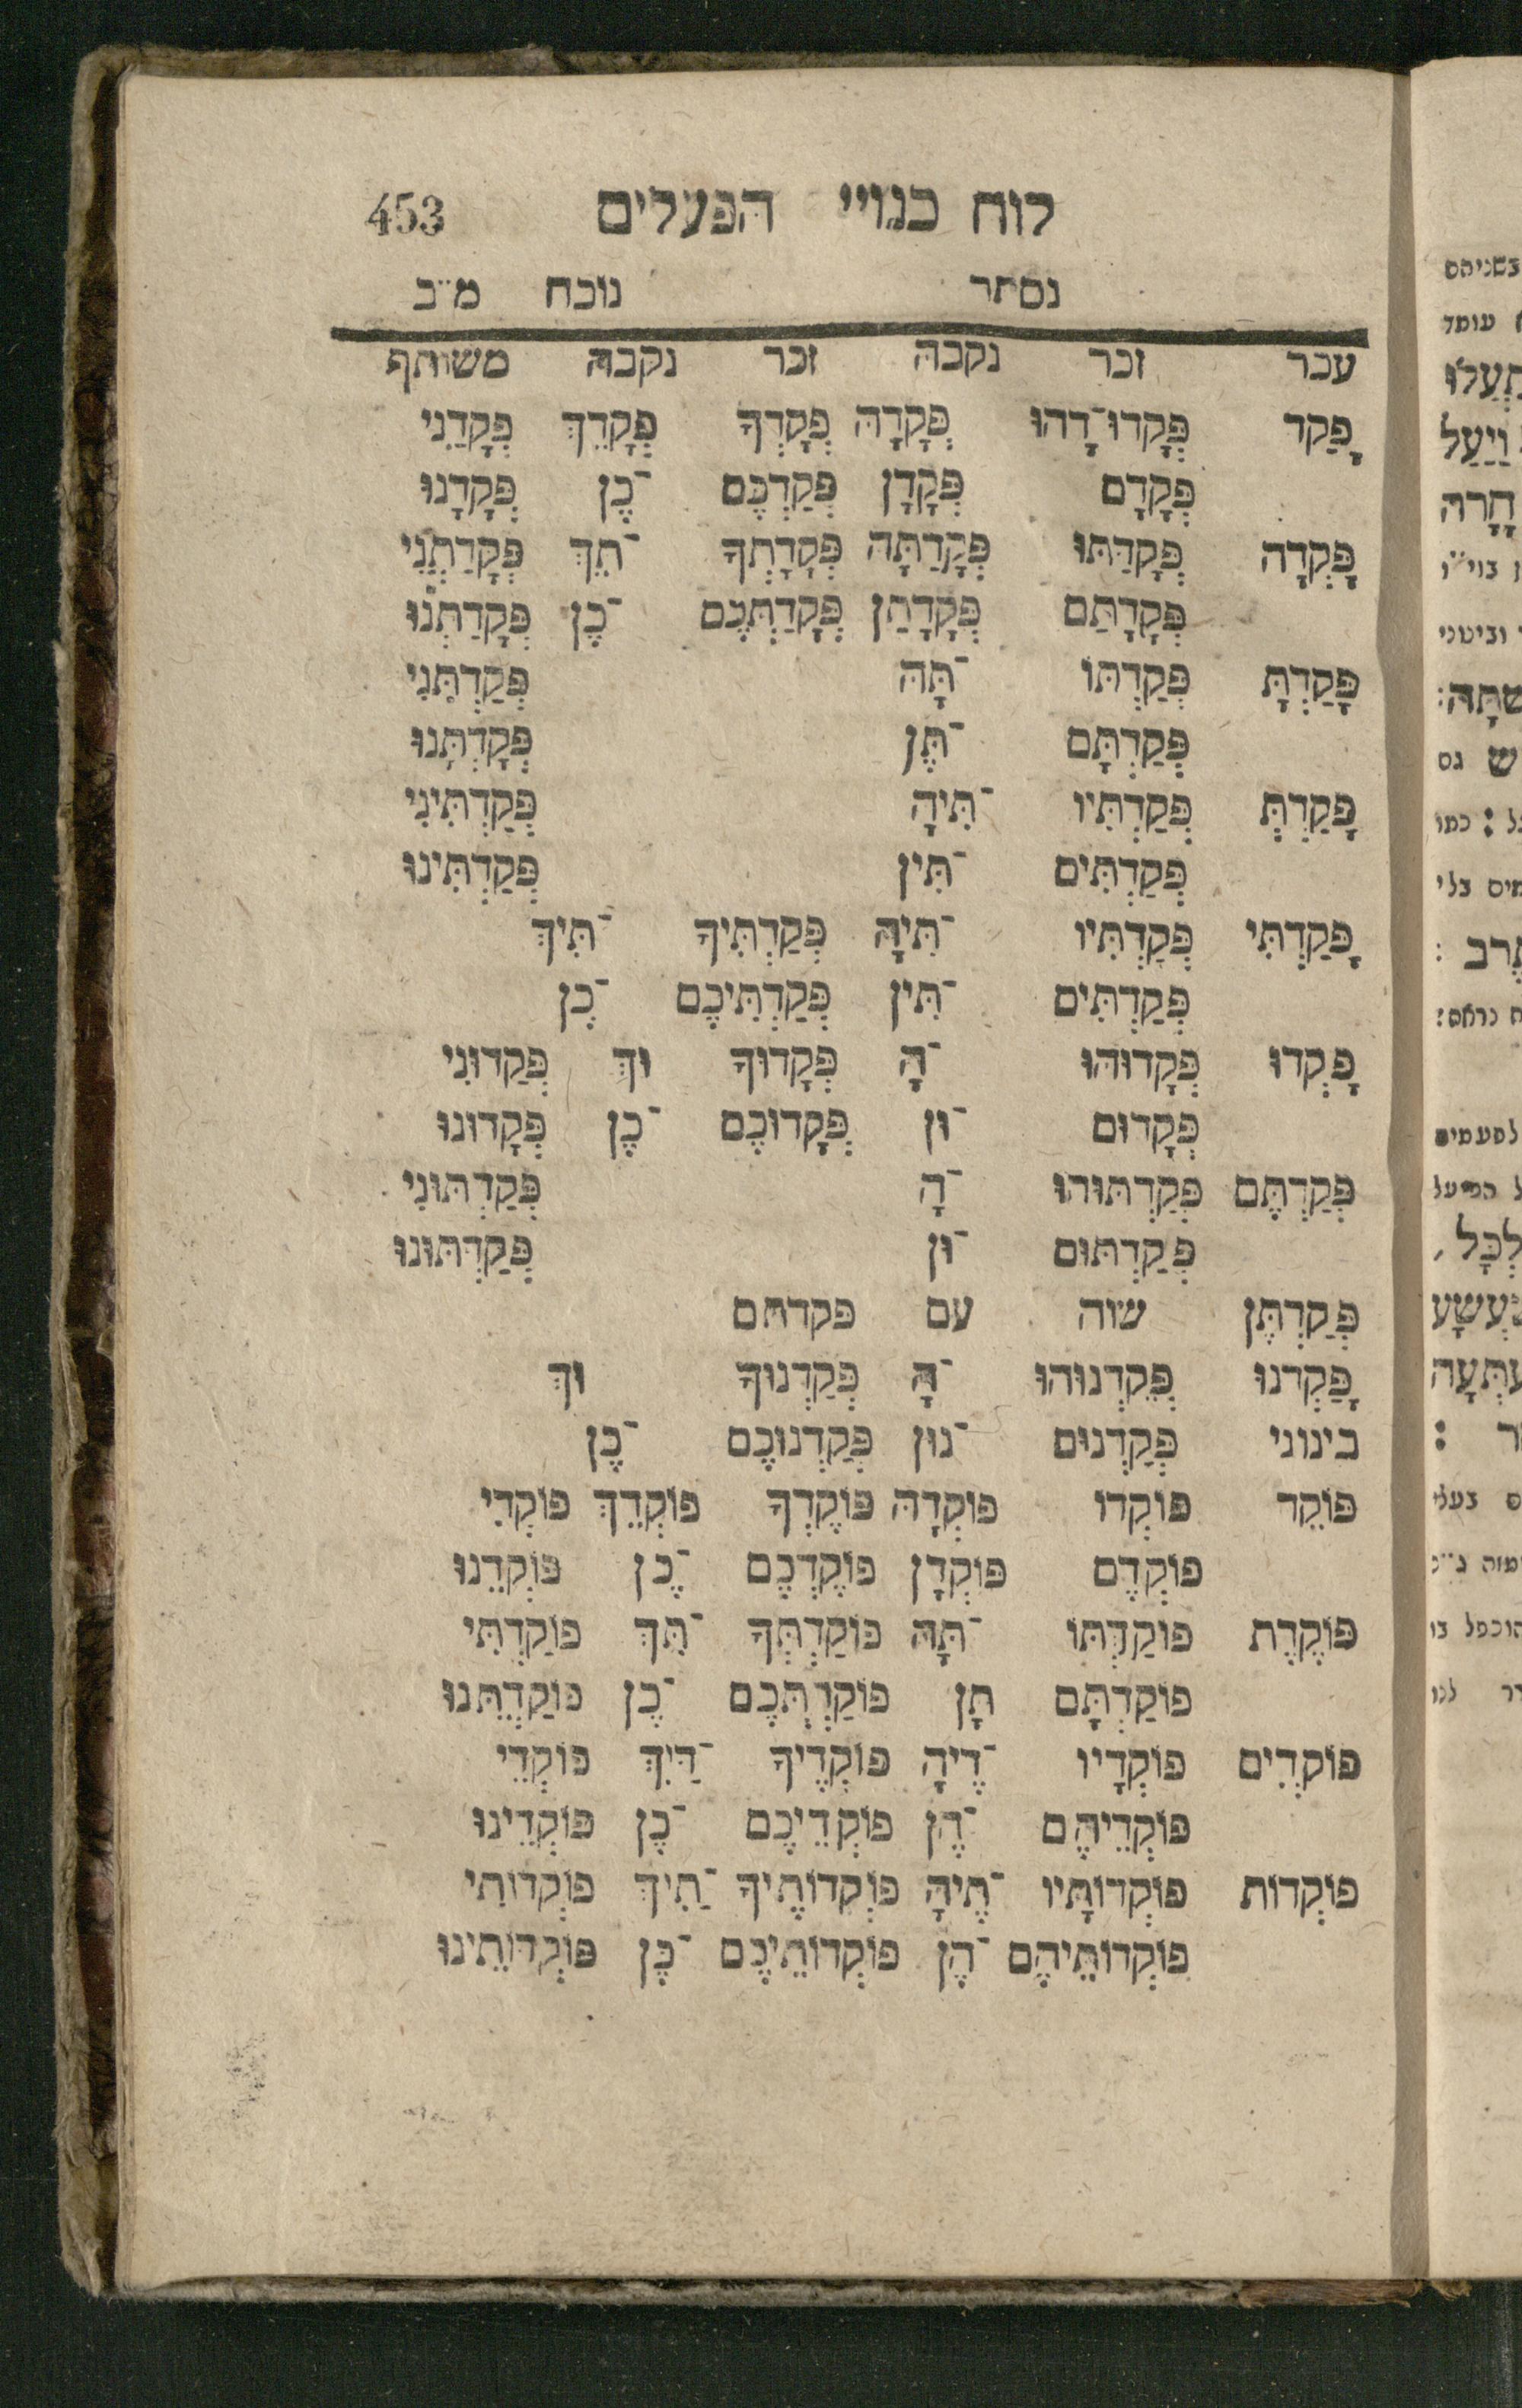 לוח כנויי הפעלים 453
נסתר נוכח מ״ב
עבר זכר נקבה זכר נקבה משותף
פָּקַד פְּקָדוּ־דָהוּ פְּקָדָהּ פְּקָדְךָ פְּקָדֵךְ פְּקָדַנִי
פְּקָדָם פְּקָדָן פְּקַדְכֶּם ־כֶן פְּקָדָנוּ
פָּקְדָה פְּקָדַתּוּ פְּקָדַתָּה פְּקָדָתְךָ ־תֵךְ פְּקָדַתְנִי
פְּקָדָתַם פְּקָדָתַן פְּקָדַתְכֶם ־כֶן פְּקָדַתְנוּ
פָּקַדְתָּ פְּקַדְתּוֹ ־תָּהּ פְּקַדְתַּנִי
פְּקַדְתָּם ־תֶּן פְּקַדְתָּנוּ
פָּקַדְתְּ פְּקַדְתִּיו ־תִּיהָ פְּקַדְתִּינִי
פְּקַדְתִּים ־תִּין פְּקַדְתִּינוּ
פָּקַדְתִּי פְּקַדְתִּיו ־תִּיהָ פְּקַדְתִּיךָ ־תִּיךְ
פְּקַדְתִּים ־תִּין פְּקַדְתִּיכֶם ־כֶן
פָּקְדוּ פְּקָדוּהוּ ־הָ פְּקָדוּךָ וּךְ פְּקַדוּנִי
פְּקָדוּם ־וּן פְּקָדוּכֶם ־כֶן פְּקָדוּנוּ
פְּקַדְתֶּם פְּקַדְתּוּהוּ ־הָ פְּקַדְתּוּנִי
פְּקַדְתּוּם ־וּן פְּקַדְתּוּנוּ
פְּקַדְתֶּן שוה עם פקדתם
פָּקַדְנוּ פְּקַדְנוּהוּ ־הָ פְּקַדְנוּךָ וּךְ
בינוני פְּקַדְנוּם ־נוּן פְּקַדְנוּכֶם ־כֶן
פּוֹקֵד פּוֹקְדוֹ פּוֹקְדָהּ פּוֹקֶדְךָ פּוֹקְדֵךְ פּוֹקְדִי
פּוֹקְדָם פּוֹקְדָן פּוֹקֶדְכֶם ־כֶן פּוֹקְדֵנוּ
פּוֹקֶדֶת פּוֹקַדְתּוֹ ־תָּהּ פּוֹקַדְתְּךָ ־תֵּךְ פּוֹקַדְתִּי
פּוֹקַדְתָּם תָן פּוֹקַדְתְּכֶם ־כֶן פּוֹקַדְתֵּנוּ
פּוֹקְדִים פּוֹקְדָיו ־דֶיהָ פּוֹקְדֶיךָ ־דַיִךְ פּוֹקְדֵי
פּוֹקְדֵיהֶם ־הֶן פּוֹקְדֵיכֶם ־כֶן פּוֹקְדֵינוּ
פּוֹקְדוֹת פּוֹקְדוֹתָיו ־תֶיהָ פּוֹקְדוֹתֶיךָ ־תַיִךְ פּוֹקְדוֹתִי
פּוֹקְדוֹתֵיהֶם ־הֶן פּוֹקְדוֹתֵיכֶם ־כֶן פּוֹקְדוֹתֵינוּ